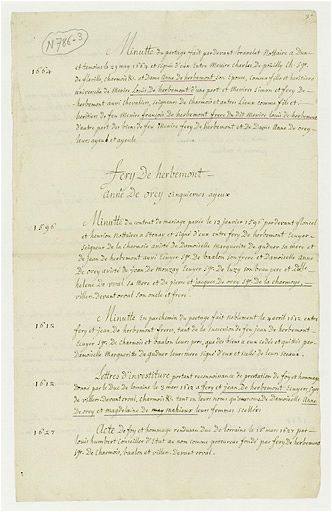 N786-3
1664
Minutte du partage fait pardevant Notaire a Dun
et temoins le 29 may 1664 et signée d'eux Entre Messire Charles de pouilly Ch. Sgr
de fléville, charnois &c. et Dame Anne de herbemont son Epouse, comme fille et heritiere
universele de Messire Louis De herbemont d'une part et Messires Simon et fery de
herbemont aussi Chevaliers, seigneurs de Charnois et autres lieux comme fils et
heritiers de feu Messire françois De herbemont frere du dit Messire Louis de herbemont
d'autre part des biens de feu Messire fery de herbemont et De Dame Anne de orey
leurs ayeul et ayeule.
fery De herbemont
anne De orey cinquiemes ayeux
1596
Minutte du contrat de mariage passé le 12 janvier 1596 pardevant
et henrion Nottaires a Stenay et signé d'eux entre fery de herbemont Ecuyer
seigneur de la charnois assisté de Damoiselle Marguerite de sa mere et
de jean de herbemont aussi Ecuyer Sgr. de baalon son frere et Damoiselle Anne
De orey assistée de jean de Mouzay Ecuyer Sgr. de luzy son beau pere et
helene de voval sa mere et de pierre et jacques de orey Sgr. de la charnoye,
villers devant orval son oncle et frere.
1612
Minutte En parchemin du partage fait Noblement le 9 avril 1612 entre
fery et jean De herbemont freres, tant de la succession de feu jean De herbemont
Ecuyer Sgr. De Charnois et baalon leur pere, que des biens a eux cedés et quittés par
Damoiselle Marguerite de leur mere signé d'eux et scellé de leurs sceaux.
1612
Lettres d'investiture portant reconnoissance de prestation de foy et hommage
donné par le duc De loraine le 3 mars 1612 a fery et jean De herbemont Ecuyers Sgrs.
de villers Devant orval, charnois &c. tant en leurs noms qu'au nom de Damoiselle Anne
De orey et magdelaine de may leurs femmes scellées
1627
Acte De foy et hommage rendu au duc De lorraine le 16 mars 1627 par
louis humbert Conseiller d'Etat au nom comme procureur fondé par fery de herbemont
Sgr. De Charnois, baalon et villers Devant orval.